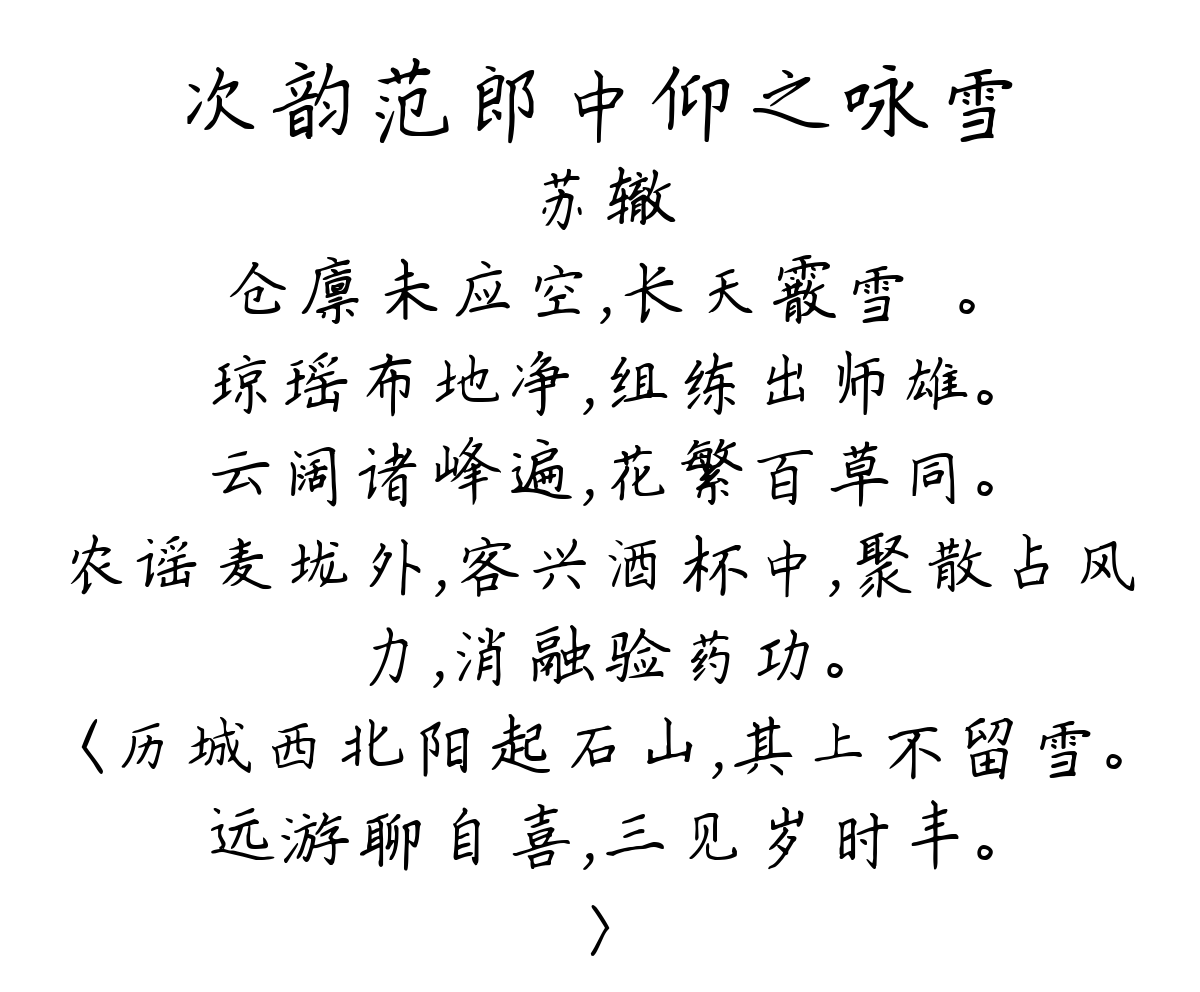 次韵范郎中仰之咏雪
苏辙
仓廪未应空,长天霰雪 。
琼瑶布地净,组练出师雄。
云阔诸峰遍,花繁百草同。
农谣麦垅外,客兴酒杯中,聚散占风
力,消融验药功。
〈历城西北阳起石山,其上不留雪。
远游聊自喜,三见岁时丰。
〉